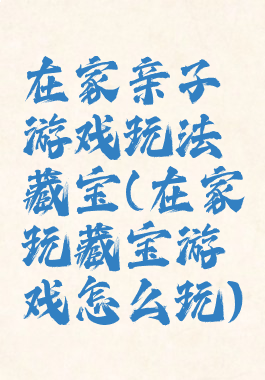 在家亲子
游戏玩法
藏宝(在家
玩藏宝游
戏怎么玩)